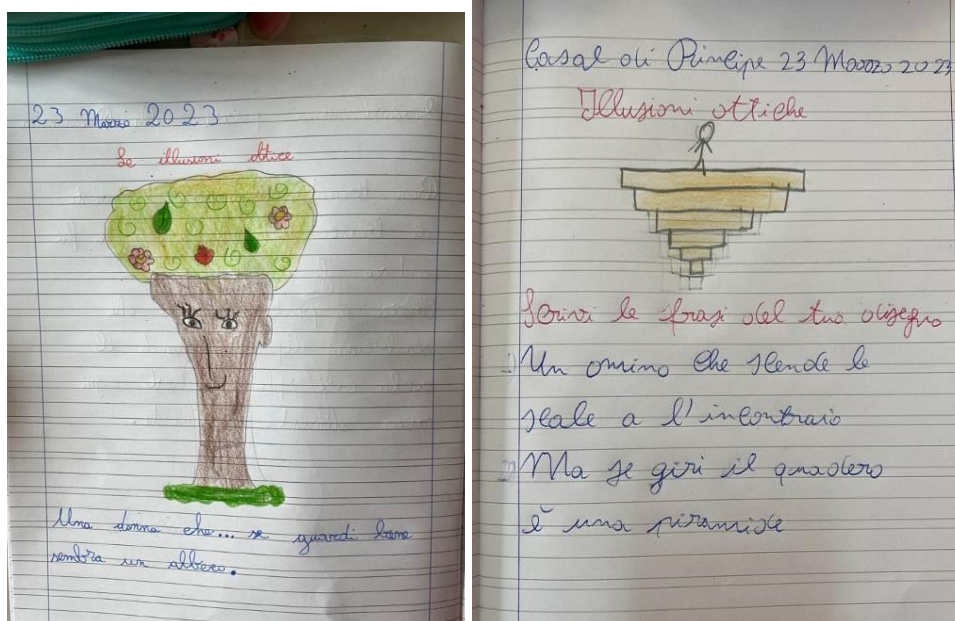 23 Marzo 2023
Le illusioni ottice
Una donna che... se guardi bene
sembra un albero.
Casal di Principe 23 Marzo 2023
Illusioni ottiche
Scrivi le frasi del tuo disegno
1) Un omino che scende le
scale a l'incontraio
2) Ma se giri il quadero
è una piramide